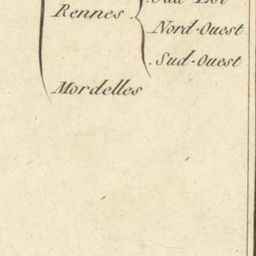 Rennes
Nord-Ouest
Sud-Ouest
Mordelles